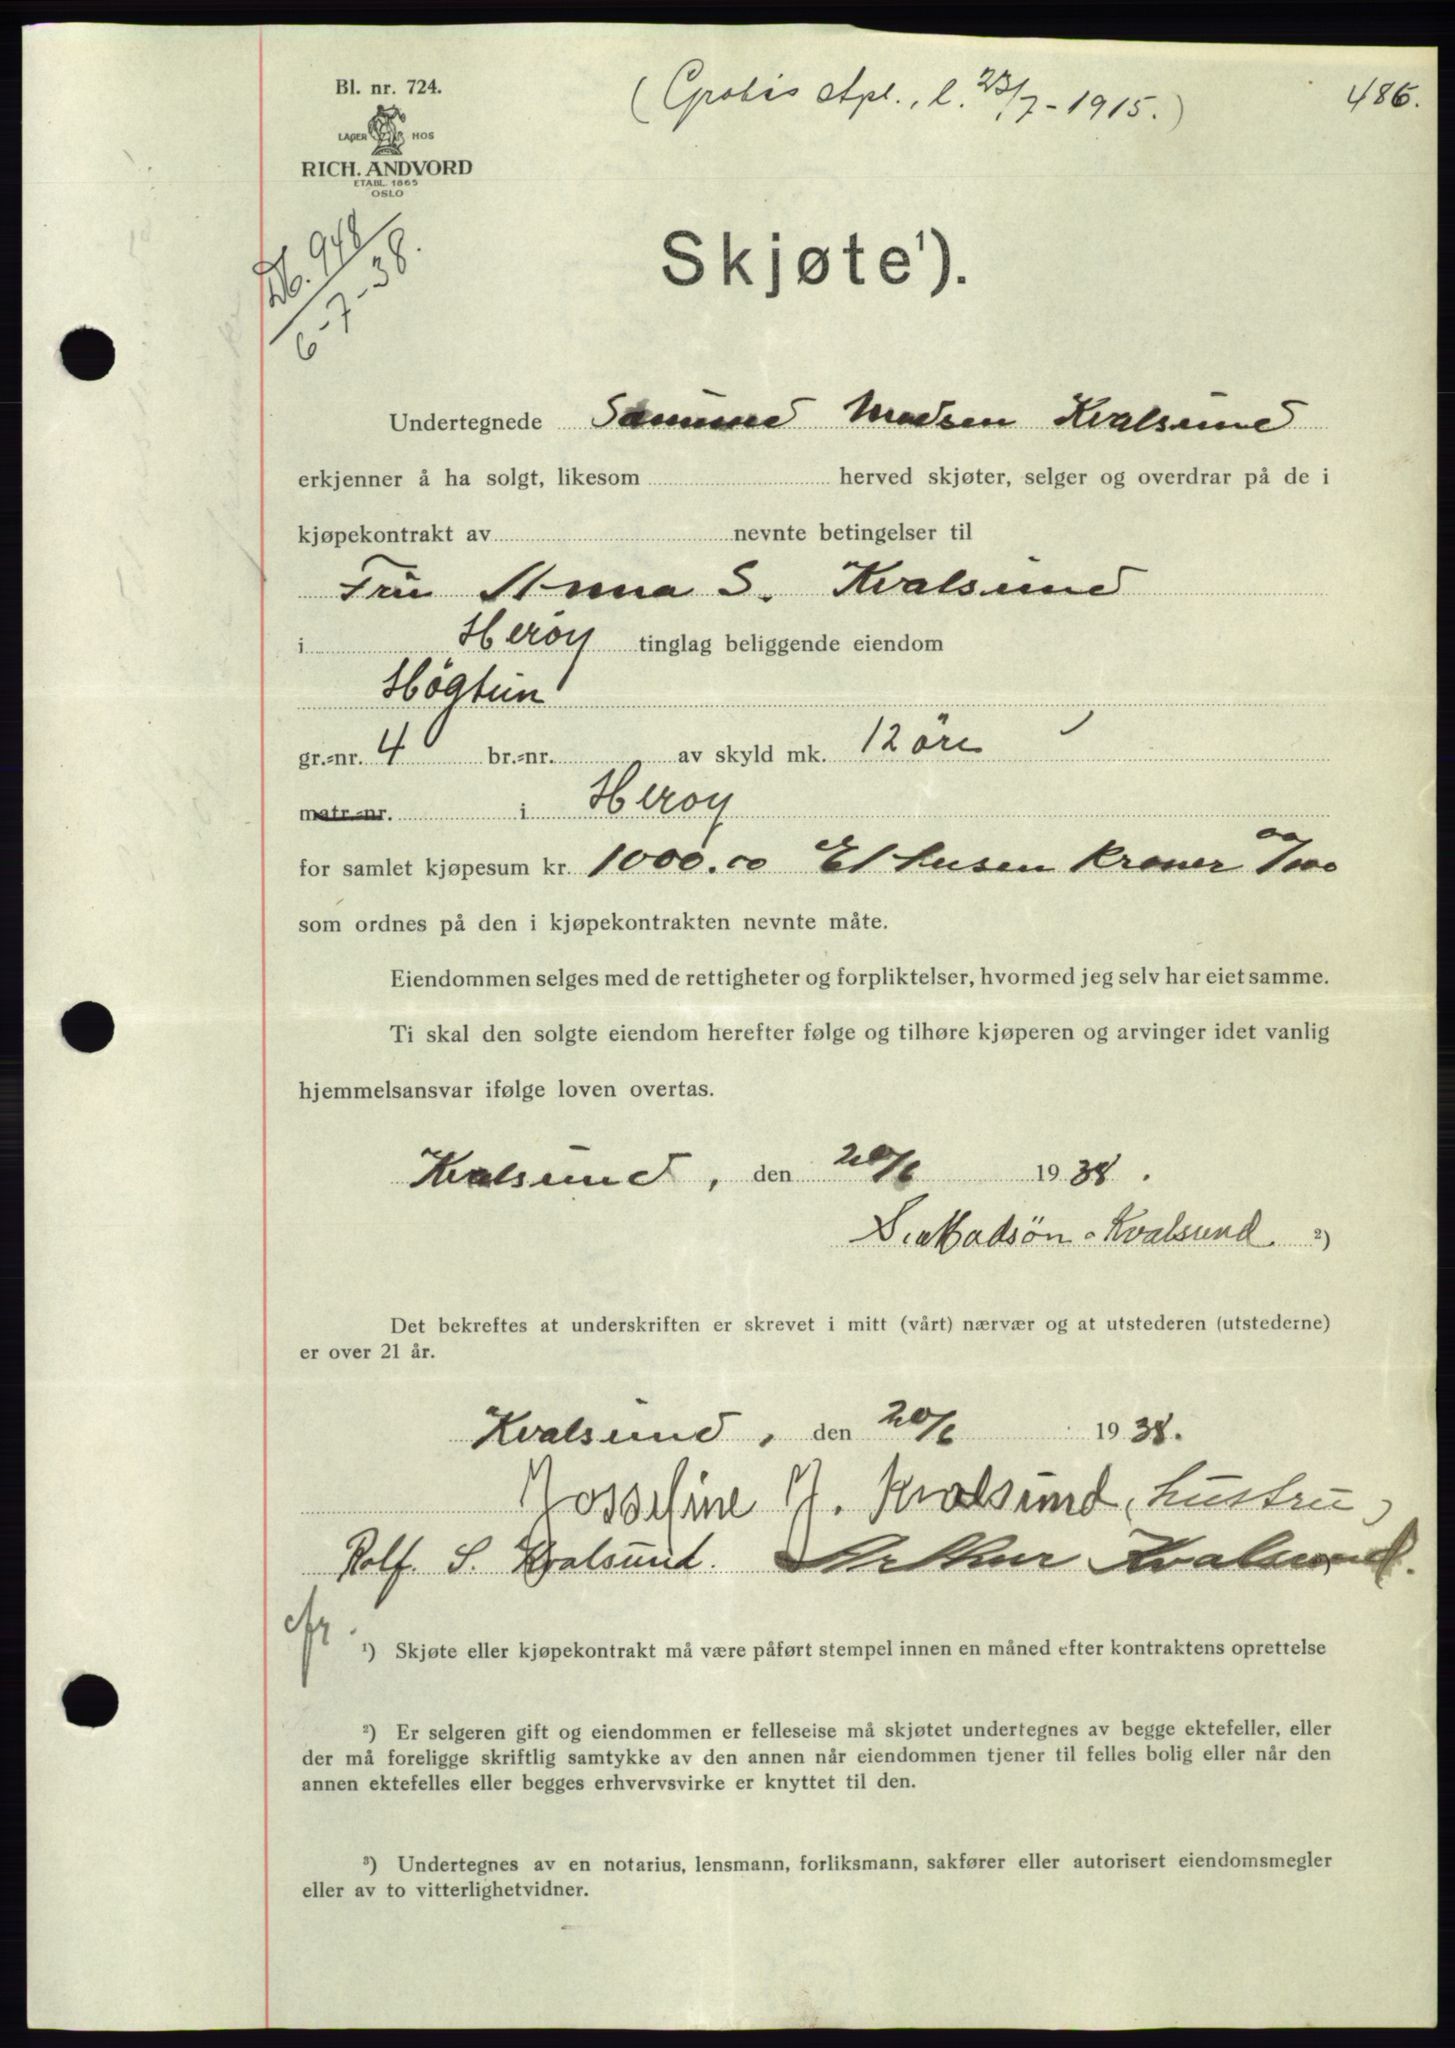 Bl. nr. 724.
LAGER HOS
RICH. ANDVORD
ETABL. 1865
OSLO
, l. 23/7-1915.)
486.
948
6-7-38.
Skjøte¹).
Undertegnede Madsen Kvalsund
erkjenner å ha solgt, likesom herved skjøter, selger og overdrar på de i
kjøpekontrakt av nevnte betingelser til
Fru Anna S. Kvalsund
i Herøy tinglag beliggende eiendom
Høgtun
gr.-nr. 4 br.-nr. av skyld mk. 12 öre
matr.-nr. i Heroy
for samlet kjøpesum kr. 1000.00 Et tusen kroner 00/100
som ordnes på den i kjøpekontrakten nevnte måte.
Eiendommen selges med de rettigheter og forpliktelser, hvormed jeg selv har eiet samme.
Ti skal den solgte eiendom herefter følge og tilhøre kjøperen og arvinger idet vanlig
hjemmelsansvar ifølge loven overtas.
Kvalsund, den 20/6 1938.
Madsön Kvalsund. ²)
Det bekreftes at underskriften er skrevet i mitt (vårt) nærvær og at utstederen (utstederne)
er over 21 år.
Kvalsund, den 20/6 1938.
Josefine J. Kvalsund (hustru)
Rolf. S. Kvalsund. Arthur Kvalsund.
¹) Skjøte eller kjøpekontrakt må være påført stempel innen en måned efter kontraktens oprettelse
²) Er selgeren gift og eiendommen er felleseise må skjøtet undertegnes av begge ektefeller, eller
der må foreligge skriftlig samtykke av den annen når eiendommen tjener til felles bolig eller når den
annen ektefelles eller begges erhvervsvirke er knyttet til den.
³) Undertegnes av en notarius, lensmann, forliksmann, sakfører eller autorisert eiendomsmegler
eller av to vitterlighetvidner.